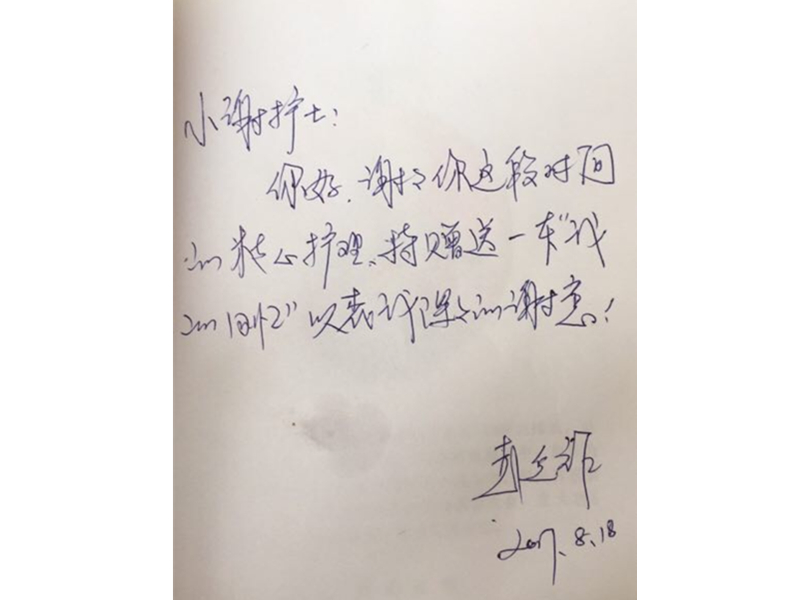 小谢护士：
你好，谢谢你这段时间
的精心护理，特赠送一本“我
的回忆”以表我深深的谢意！
2017.8.18